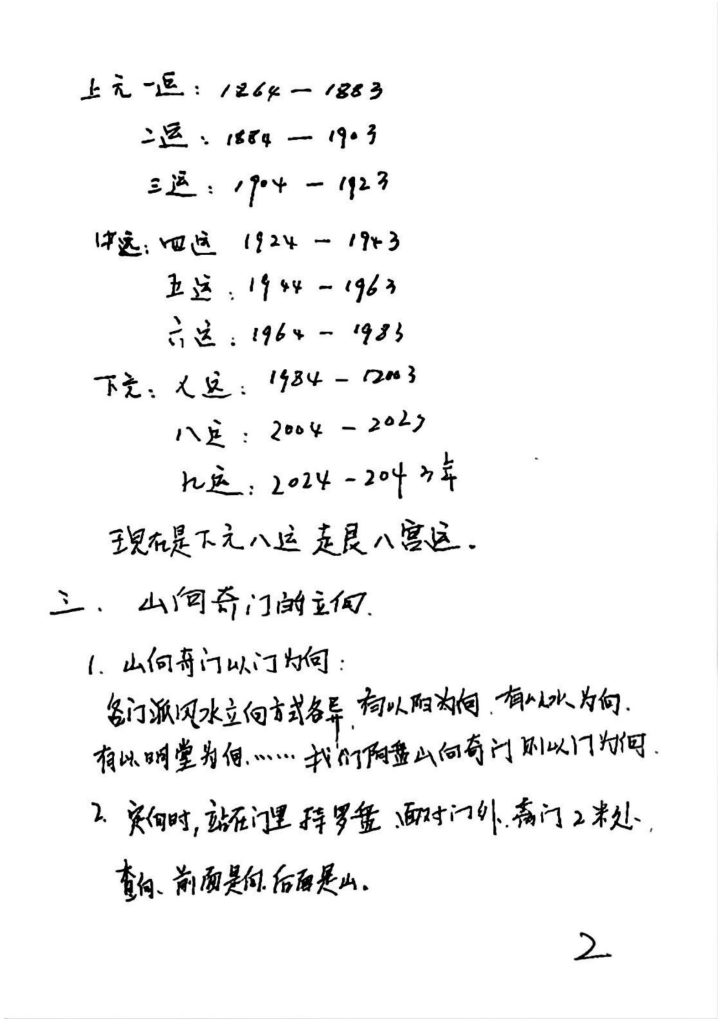 上元一运：1864 — 1883
二运：1884 — 1903
三运：1904 — 1923
中运：四运 1924 — 1943
五运：1944 — 1963
六运：1964 — 1983
下元：七运：1984 — 2003
八运：2004 — 2023
九运：2024 — 2043年
现在是下元八运 走艮八宫运。
三、山向奇门的立向.
1. 山向奇门以门为向：
各门派风水立向方式各异，有以阳为向、有以水为向.
有以明堂为向…… 我们阴盘山向奇门则以门为向.
2. 定向时，站在门里 持罗盘、面对门外、离门2米处、
查向、前面是向、后面是山。
2